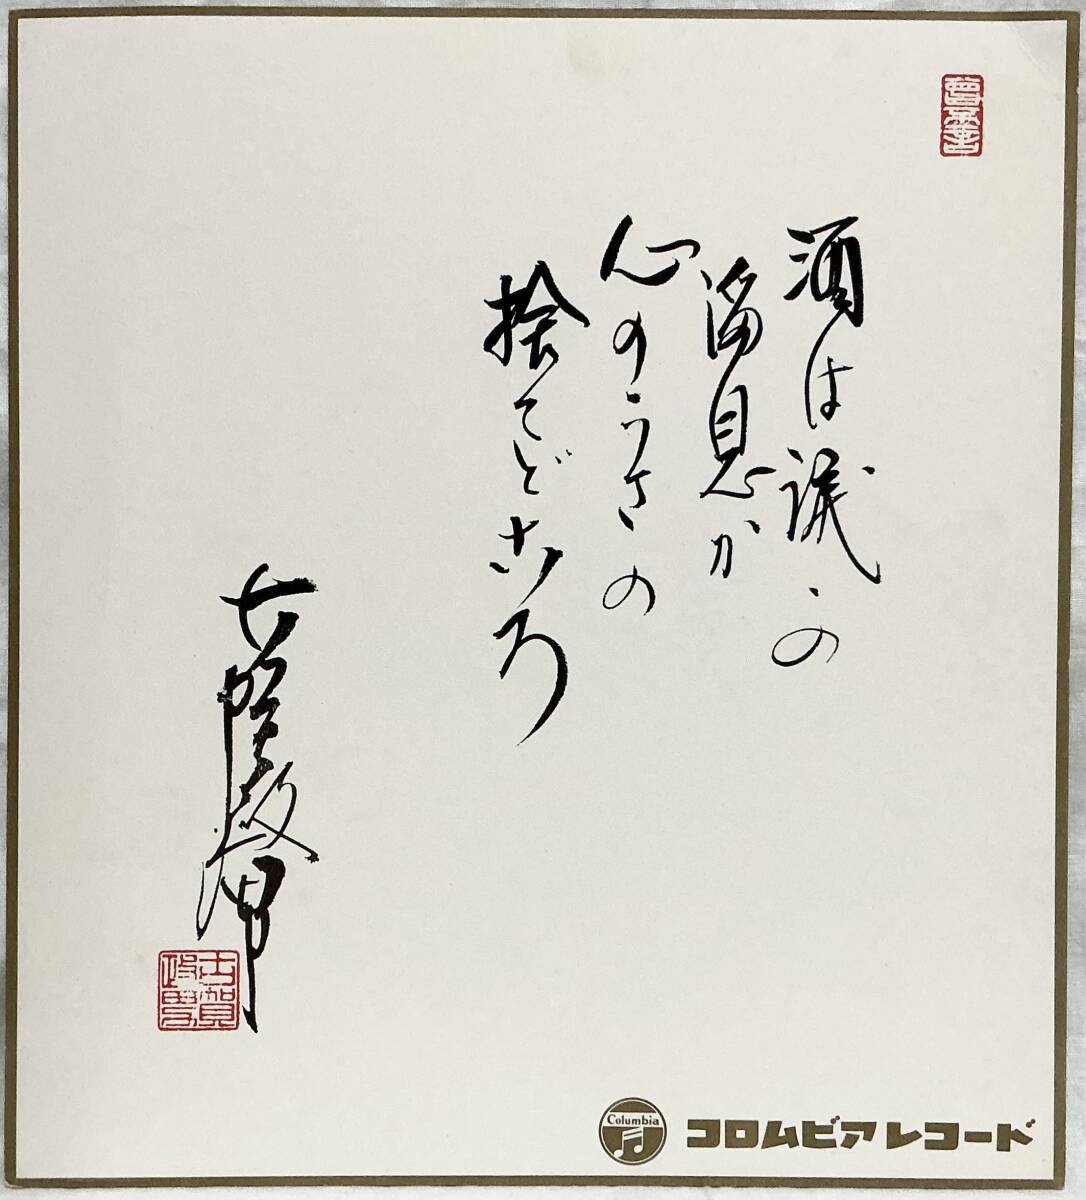 酒は涙か
溜息か
心のうさの
捨てどころ
古賀政男
古賀政男
Columbia
コロムビアレコード